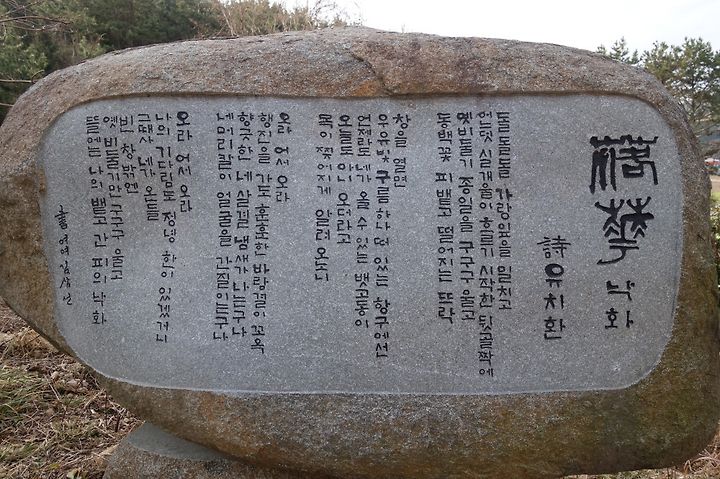 落華 낙화
詩 유치환
돌돌돌 가랑잎을 밀치고
어덧 실개울이 흐르기 시작한 뒷골짝에
멧비둘기 종일을 구구구 울고
동백꽃 피뱉고 떨어지는 뜨락
창을 열면
우유빛 구름 하나 떠 있는 항구에선
언제라도 네가 올 수 있는 뱃고동이
오늘도 아니 오더라고
목이 찢어지게 알려 오노니
오라 어서 오라
행길을 가도 훈훈한 바람결이 꼬옥
향긋한 네 살결 냄새가 나는구나
네 머리칼이 얼굴을 간질이는구나
오라 어서 오라
나의 기다림도 정녕 한이 있겠거니
그때사 네가 온들
빈 창밖엔
멧비둘기만 구구구 울고
뜰에는 나의 뱉고 간 피의 낙화